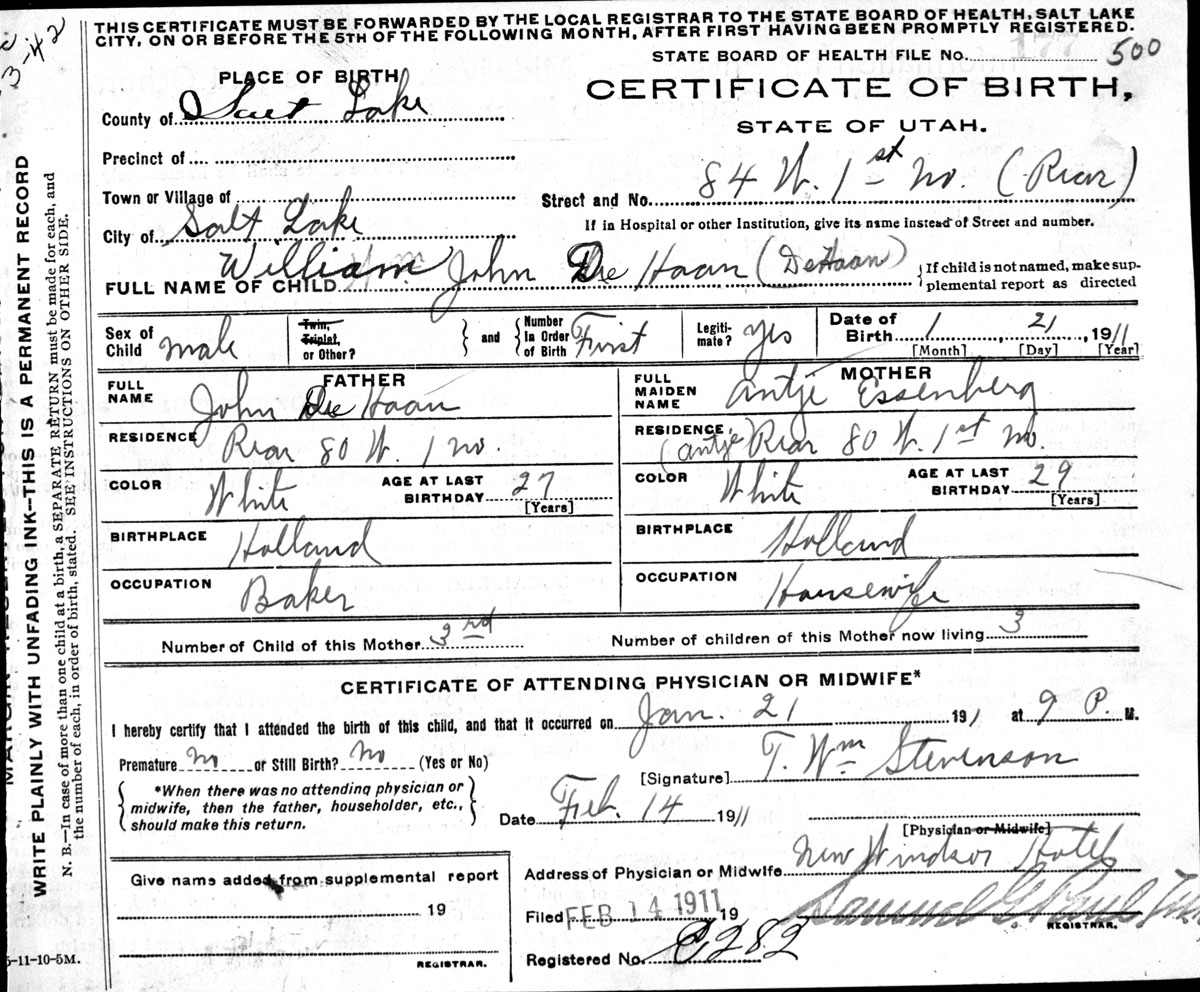 3-42
THIS CERTIFICATE MUST BE FORWARDED BY THE LOCAL REGISTRAR TO THE STATE BOARD OF HEALTH, SALT LAKE
CITY, ON OR BEFORE THE 5TH OF THE FOLLOWING MONTH, AFTER FIRST HAVING BEEN PROMPTLY REGISTERED.
STATE BOARD OF HEALTH FILE No. 500
PLACE OF BIRTH
CERTIFICATE OF BIRTH,
STATE OF UTAH.
County of Salt Lake
Precinct of
Town or Village of
Street and No. 84 W. 1st No. (Rear)
If in Hospital or other Institution, give its name instead of Street and number.
City of Salt Lake
FULL NAME OF CHILD William John De Haan (DeHaan)
If child is not named, make sup-
plemental report as directed
Sex of Child male
Twin, Triplet, or Other?
and
Number In Order of Birth First
Legiti-mate? yes
Date of Birth 1, 21, 1911
[Month] [Day] [Year]
FATHER
FULL NAME John De Haan
RESIDENCE Rear 80 W. 1 No.
COLOR White
AGE AT LAST BIRTHDAY 27
[Years]
BIRTHPLACE Holland
OCCUPATION Baker
MOTHER
FULL MAIDEN NAME Antje Essenberg
RESIDENCE (Antje) Rear 80 W. 1st No.
COLOR White
AGE AT LAST BIRTHDAY 29
[Years]
BIRTHPLACE Holland
OCCUPATION Housewife
Number of Child of this Mother 3rd
Number of children of this Mother now living 3
CERTIFICATE OF ATTENDING PHYSICIAN OR MIDWIFE*
I hereby certify that I attended the birth of this child, and that it occurred on Jan. 21 1911 at 9 P. M.
Premature no or Still Birth? No (Yes or No)
[Signature] T. Wm Stevenson
*When there was no attending physician or
midwife, then the father, householder, etc.,
should make this return.
Date Feb. 14 1911
[Physician or Midwife]
Give name added from supplemental report
19
REGISTRAR.
Address of Physician or Midwife New Windsor Hotel
Filed FEB 14 1911 19
Samuel G Paul
REGISTRAR.
Registered No. C282
5-11-10-5M.
WRITE PLAINLY WITH UNFADING INK—THIS IS A PERMANENT RECORD
N. B.—In case of more than one child at a birth, a SEPARATE RETURN must be made for each, and
the number of each, in order of birth, stated. SEE INSTRUCTIONS ON OTHER SIDE.